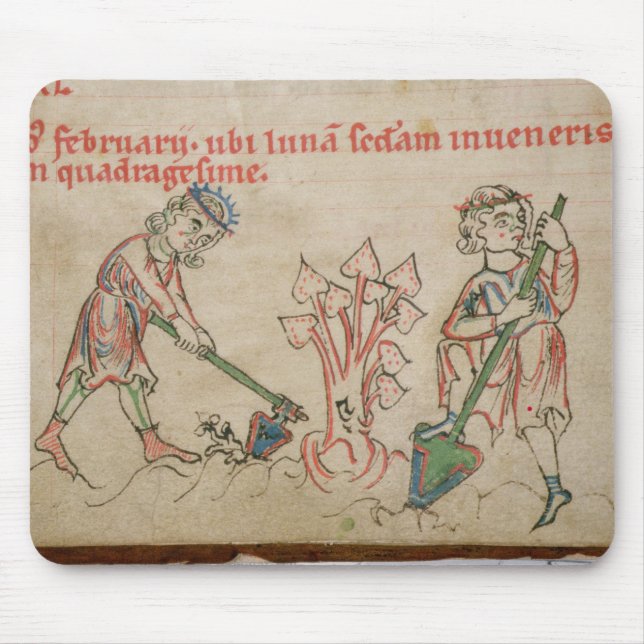 februarij · ubi lunā sc̄dam inueneris
n quadragesime.